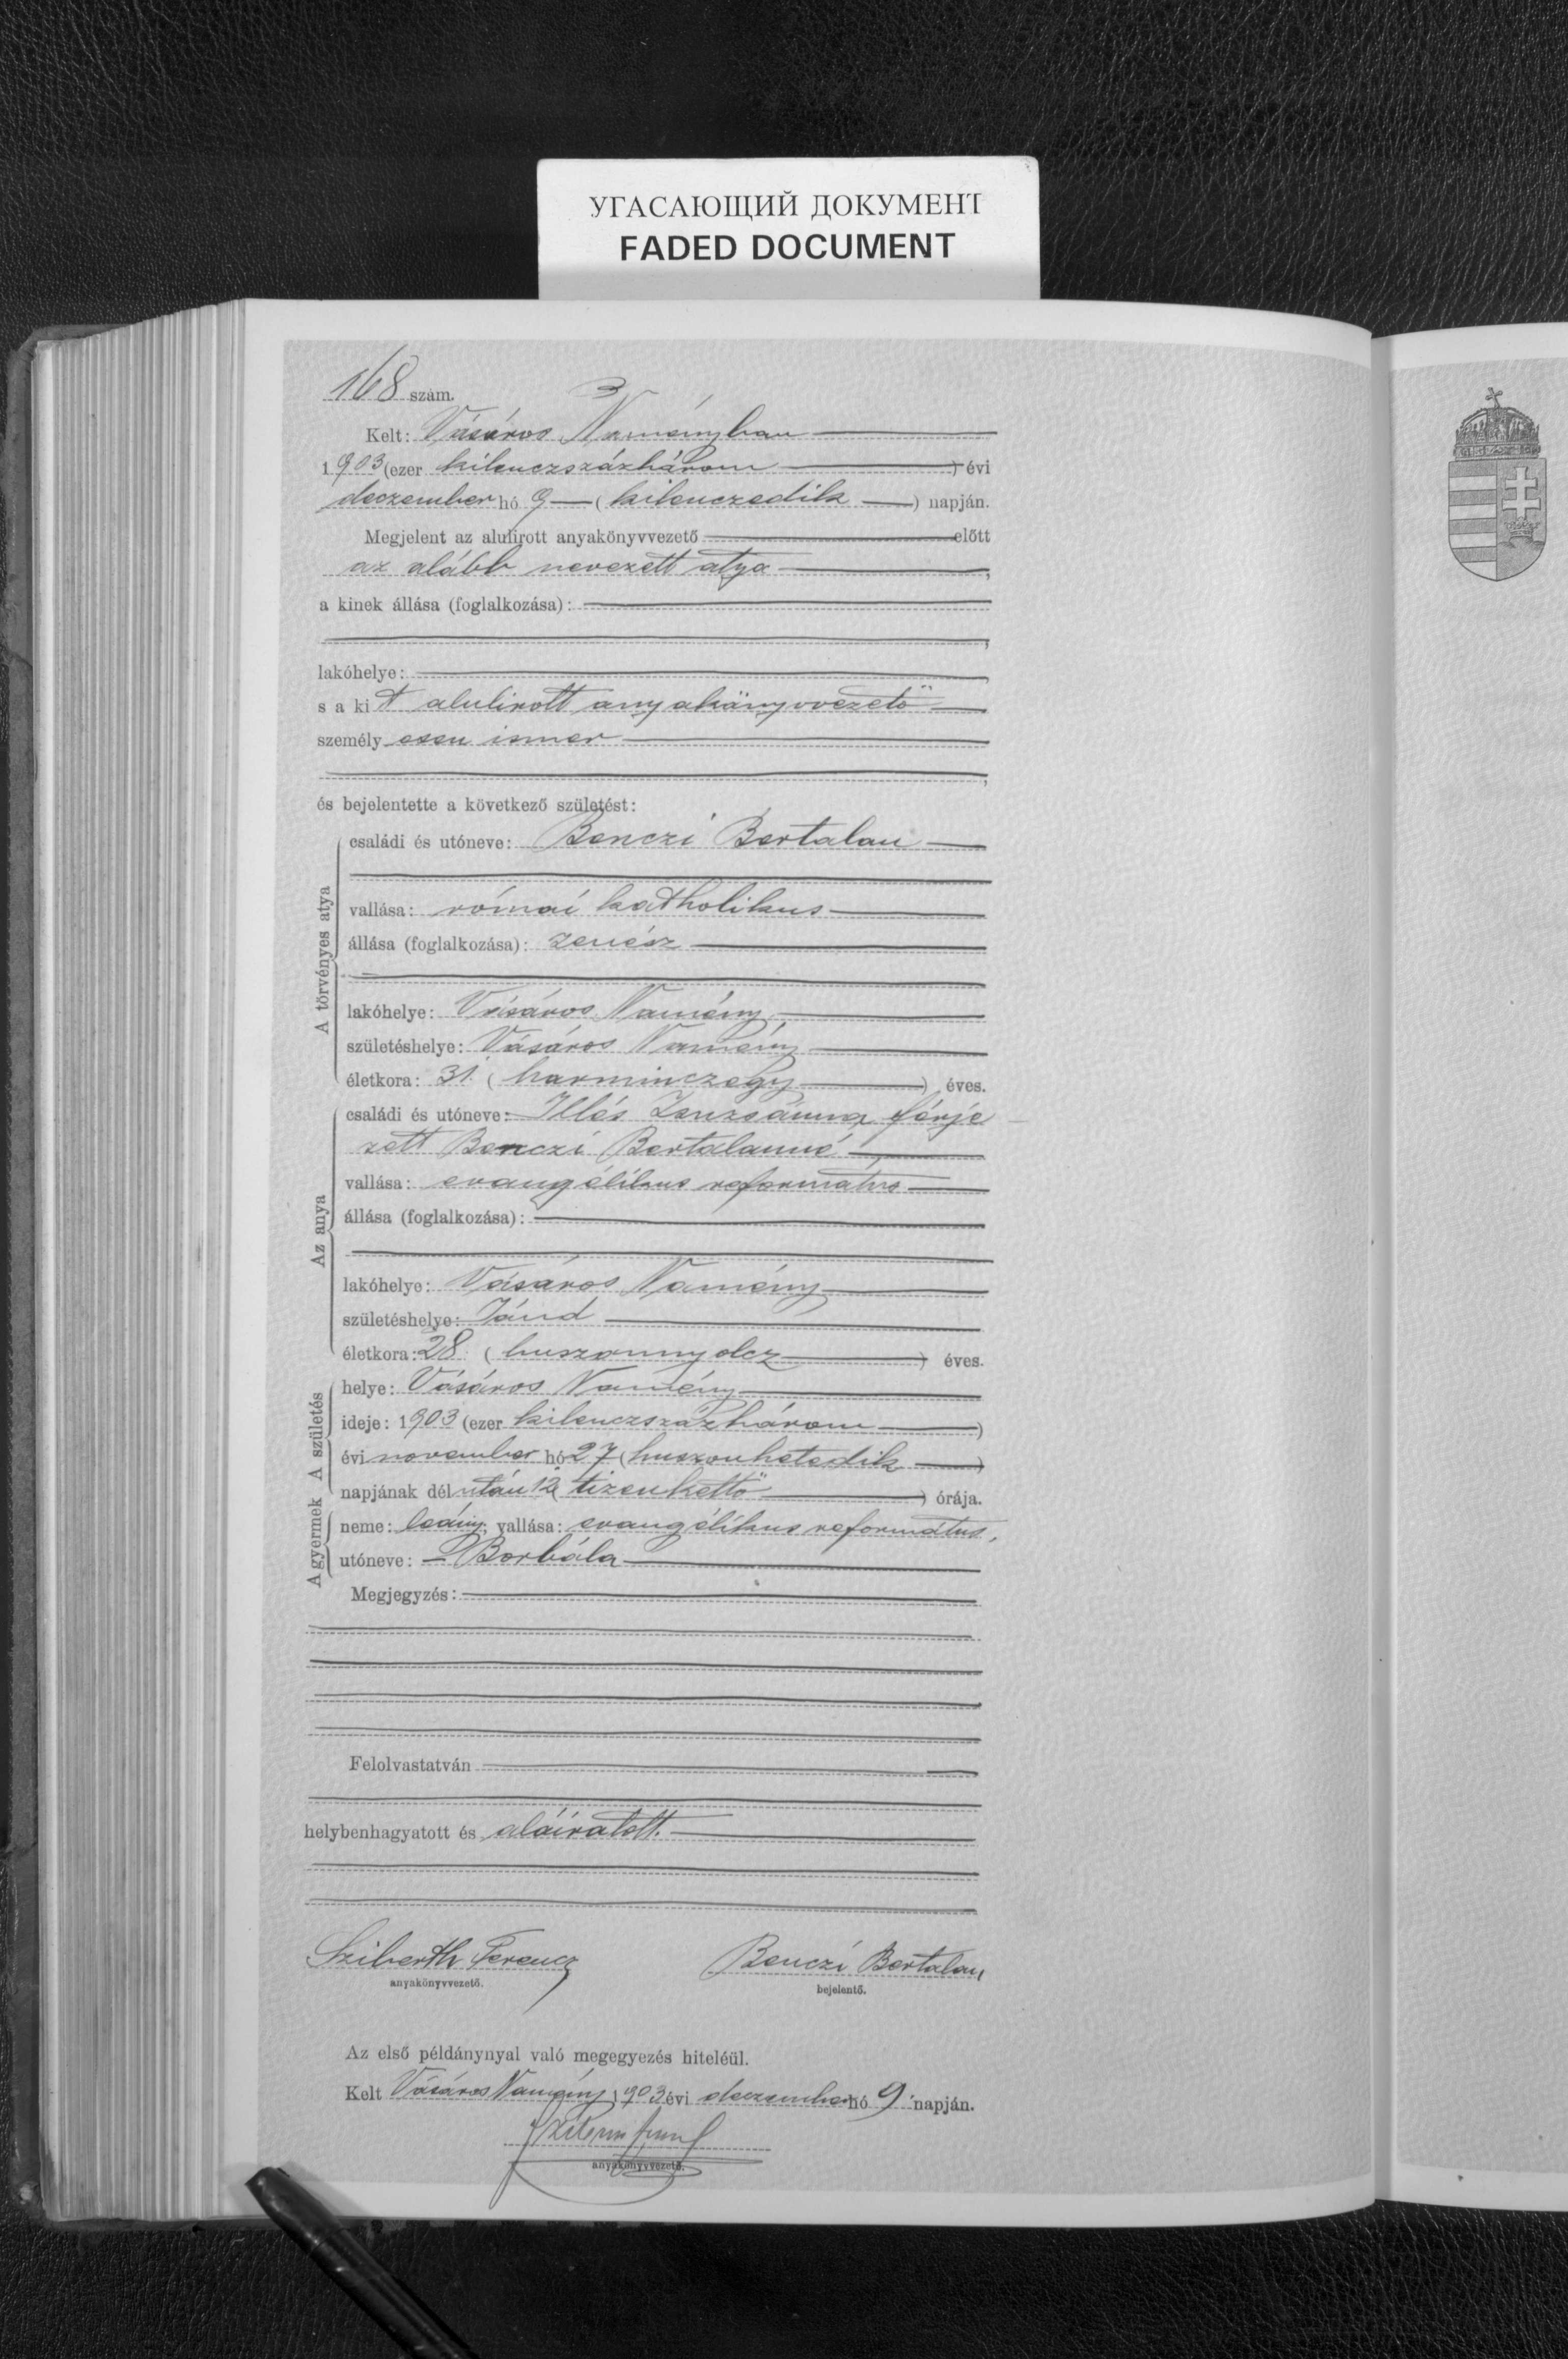 УГАСАЮЩИЙ ДОКУМЕНТ
FADED DOCUMENT
168 szám.
Kelt: Vásáros Naményban
1903 (ezer kilenczszázhárom) évi
deczember hó 9 (kilenczedik) napján.
Megjelent az alulirott anyakönyvvezető előtt
az alább nevezett atya,
a kinek állása (foglalkozása):
lakóhelye:
s a kit alulirott anyakönyvvezető
személyesen ismer
és bejelentette a következő születést:
A törvényes atya
családi és utóneve: Benczi Bertalan
vallása: római katholikus
állása (foglalkozása): zenész
lakóhelye: Vásáros Namény
születéshelye: Vásáros Namény
életkora: 31 (harminczegy) éves.
Az anya
családi és utóneve: Illés Zsuzsánna, férje
zett Benczi Bertalanné
vallása: evangélikus református
állása (foglalkozása):
lakóhelye: Vásáros Namény
születéshelye: Jánd
életkora: 28 (huszonnyolcz) éves.
A születés
helye: Vásáros Namény
ideje: 1903 (ezer kilenczszázhárom)
évi november hó 27 (huszonhetedik)
napjának délután 12 (tizenkettő) órája.
A gyermek
neme: leány; vallása: evangélikus református,
utóneve: Borbála
Megjegyzés:
Felolvastatván
helybenhagyatott és aláíratott.
Sziberth Ferencz Benczi Bertalan
anyakönyvvezető. bejelentő.
Az első példánynyal való megegyezés hiteléül.
Kelt Vásáros Namény 1903 évi deczember hó 9. napján.
anyakönyvvezető.